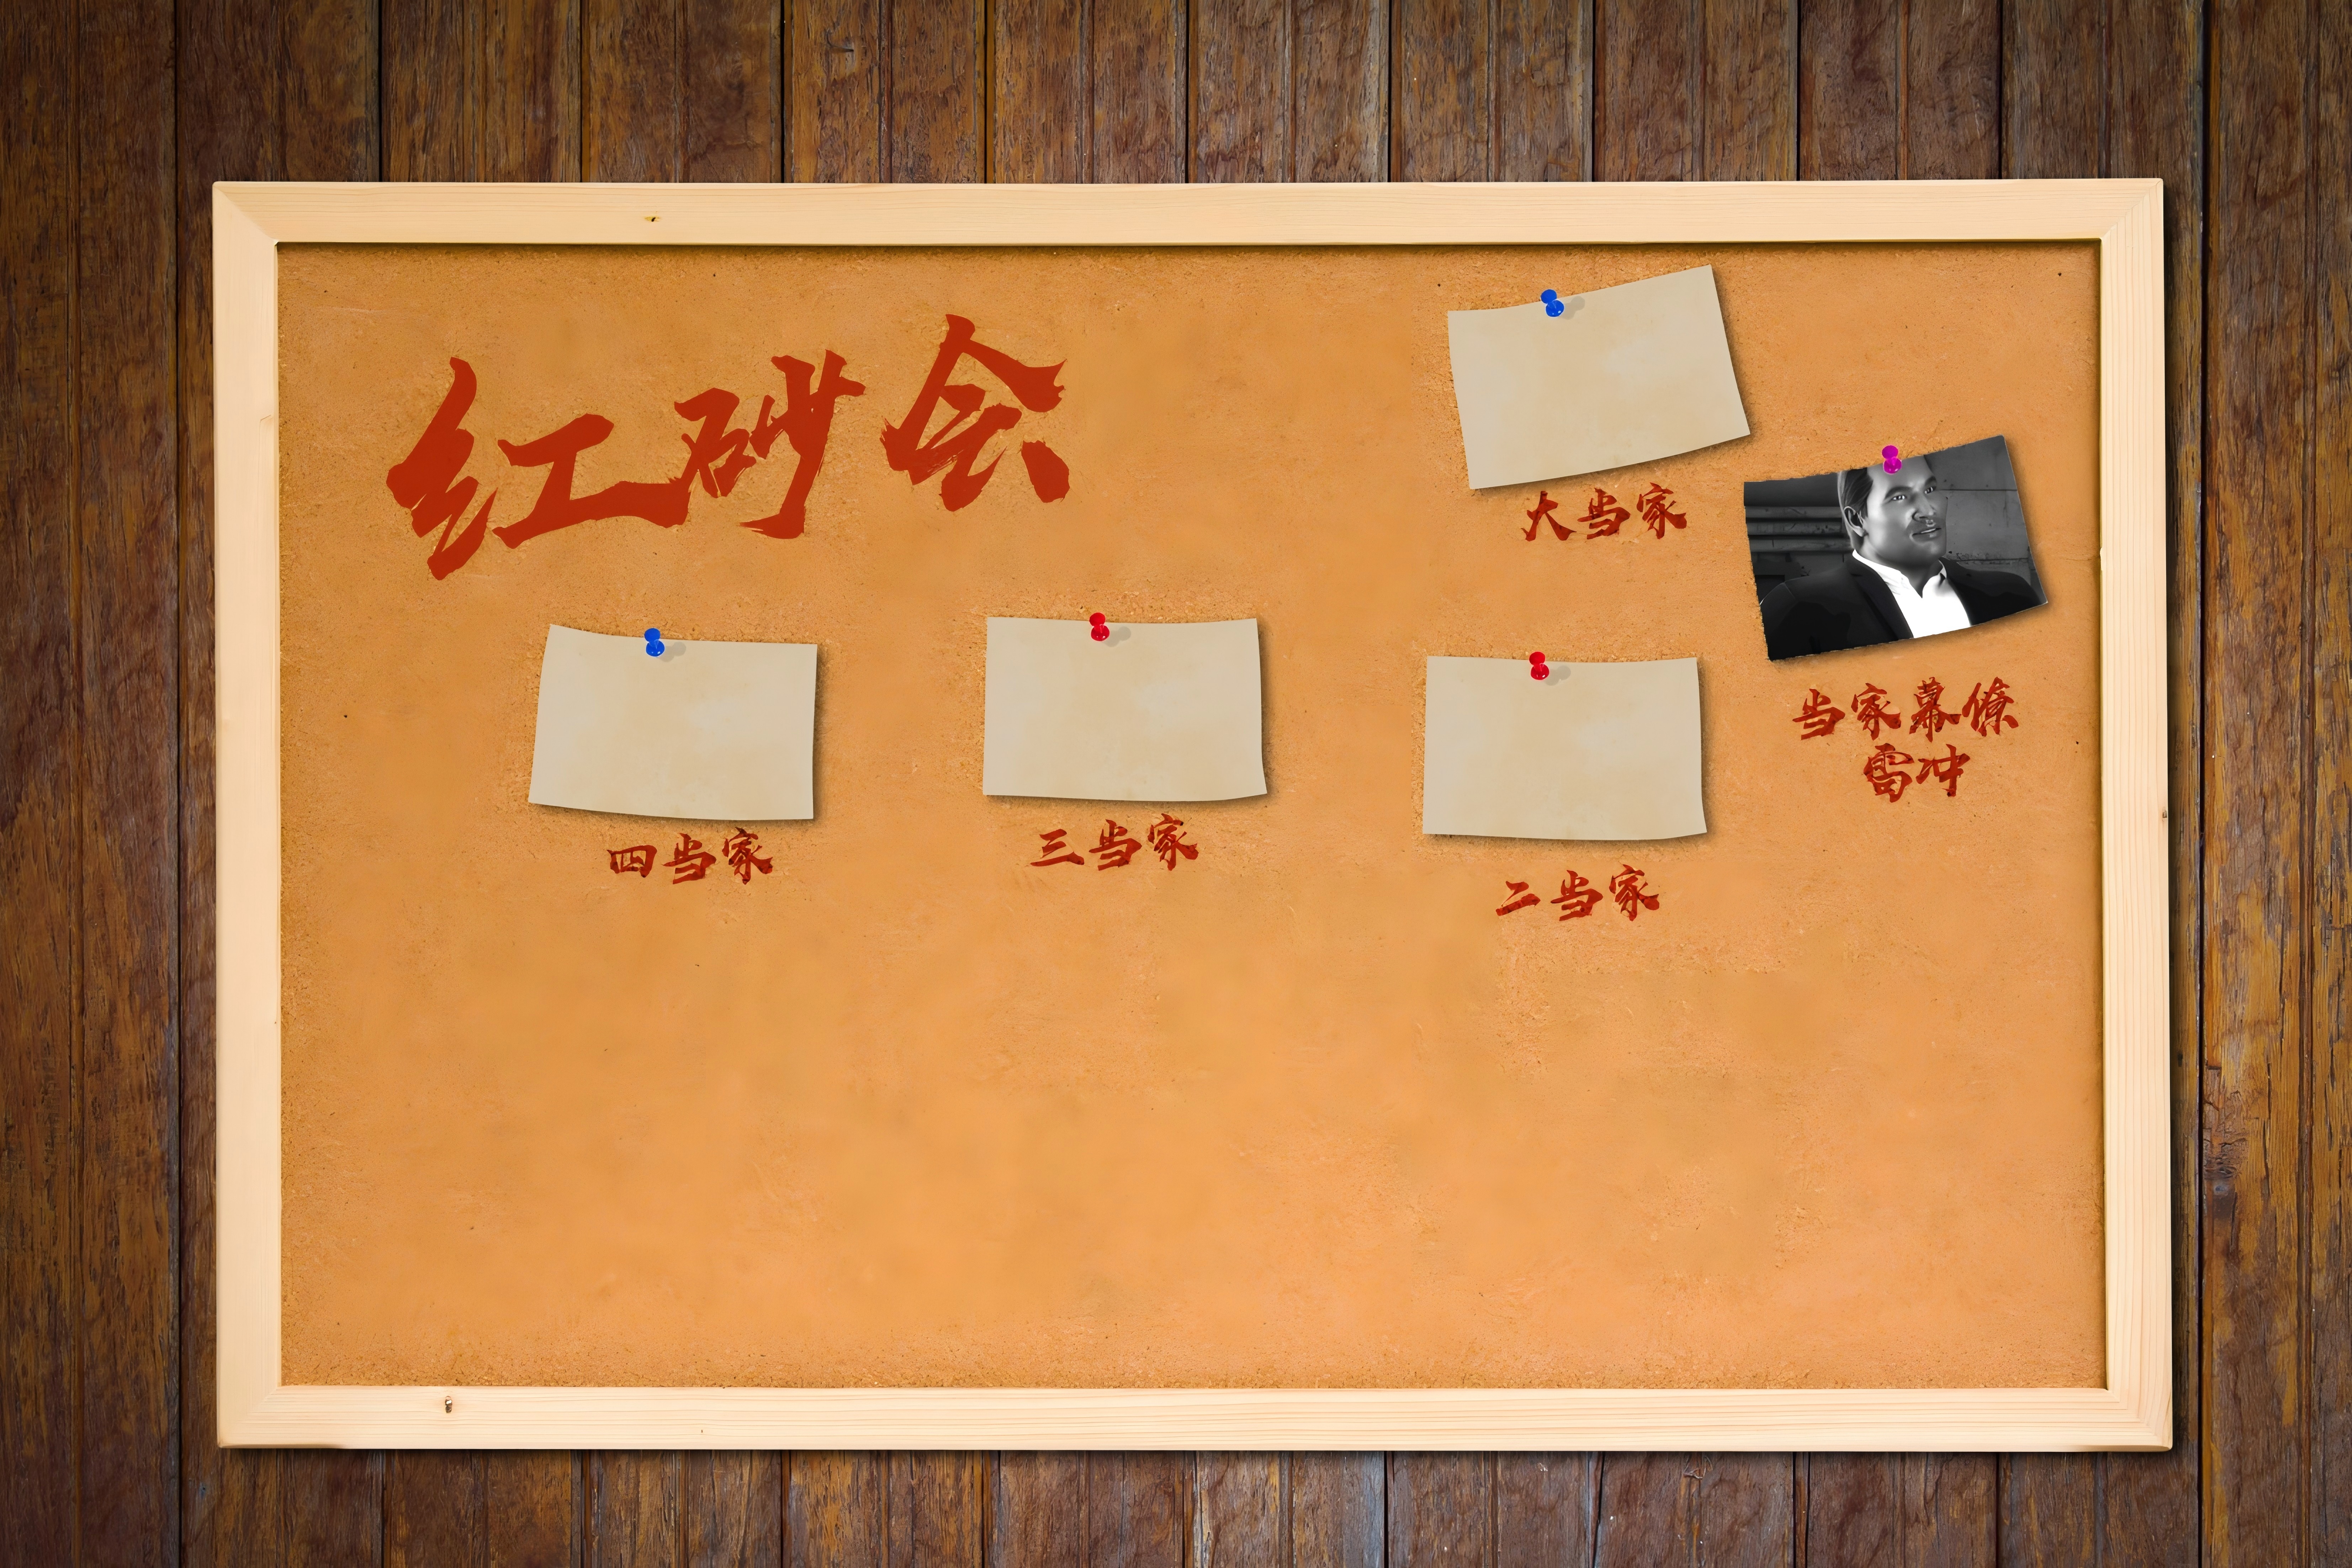 红砂会
大当家
当家幕僚
雷冲
四当家
三当家
二当家